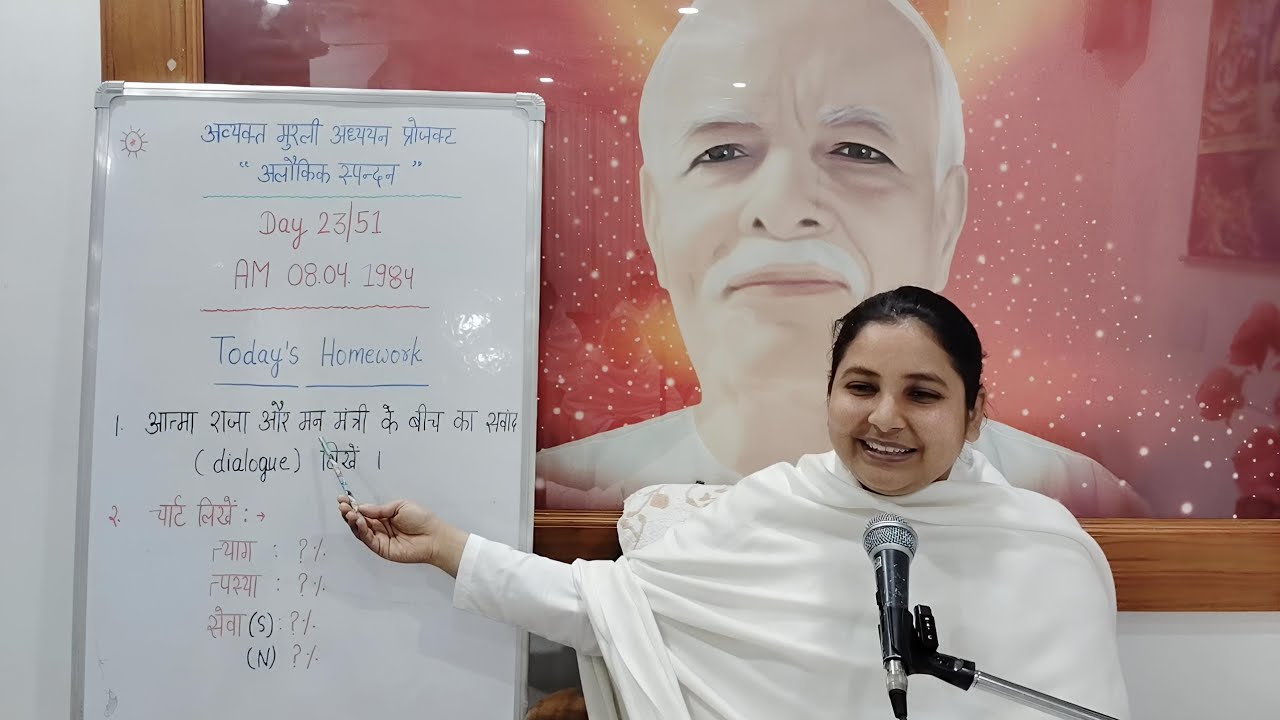 अव्यक्त मुरली अध्ययन प्रोजक्ट
“ अलौकिक स्पन्दन ”
Day 23/51
AM 08.04. 1984
Today's Homework
1. आत्मा राजा और मन मंत्री के बीच का सवांद
(dialogue) लिखें ।
२. चार्ट लिखें : →
त्याग : ? %
त्पस्या : ? %
सेवा (S) : ? %
(N) ? %